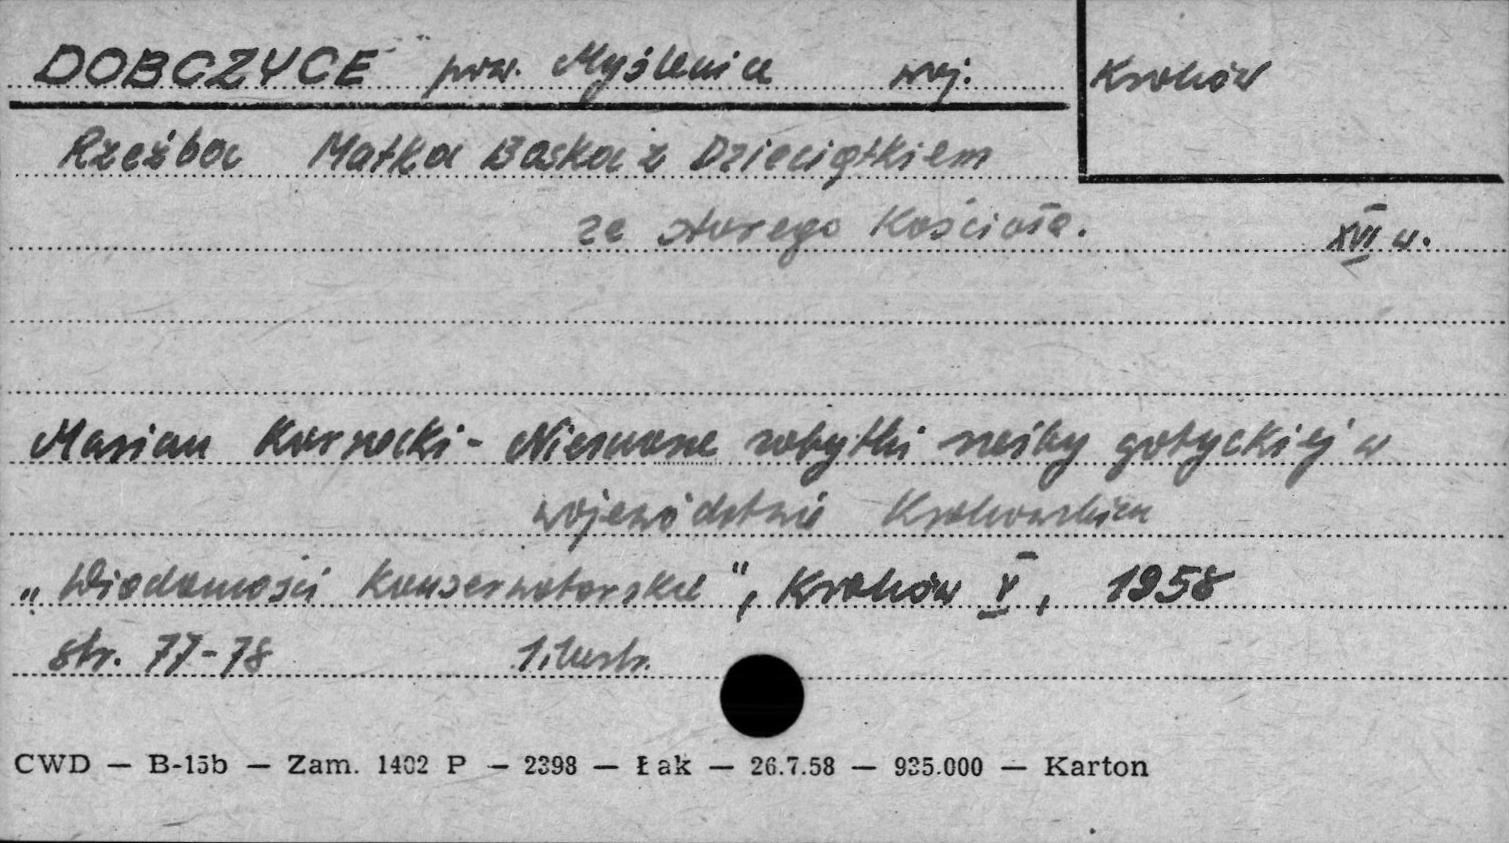 DOBCZYCE pow. Myślenice woj. Kraków
Rzeźba Matka Boska z Dzieciątkiem
ze starego Kościoła. XVI w.
Marian Kornecki - Nieznane zabytki rzeźby gotyckiej w
województwie Krakowskim
„Wiadomości Konserwatorskie", Kraków V, 1958
str. 77-78 1 ilustr.
CWD — B-15b — Zam. 1402 P — 2398 — Łak — 26.7.58 — 935.000 — Karton